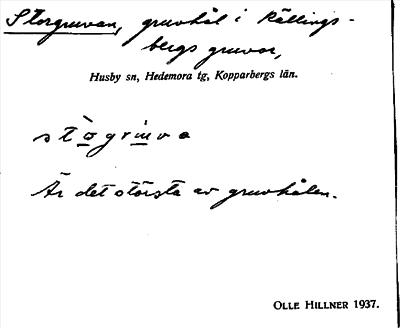 Storgruvan, gruvhål i Källings-
bergs gruvor,
Husby sn, Hedemora tg, Kopparbergs län.
stògrùva
Är det största av gruvhålen.
OLLE HILLNER 1937.